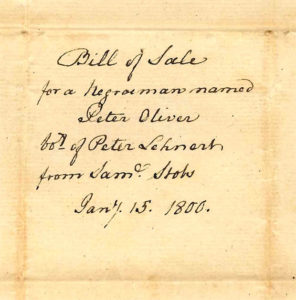 Bill of Sale
for a Negro man named
Peter Oliver
bot. of Peter Lehnert
from Saml. Stots
Jany. 15. 1800.